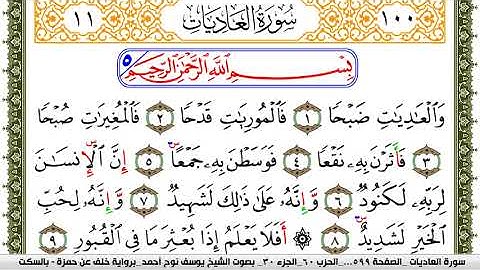 ١١ سُورَةُ العَادِيَات ١٠٠
بِسْمِ ٱللَّهِ ٱلرَّحْمَٰنِ ٱلرَّحِيمِ ٥
وَٱلْعَٰدِيَٰتِ ضَبْحًا ١ فَٱلْمُورِيَٰتِ قَدْحًا ٢ فَٱلْمُغِيرَٰتِ صُبْحًا
٣ فَأَثَرْنَ بِهِۦ نَقْعًا ٤ فَوَسَطْنَ بِهِۦ جَمْعًا ٥ إِنَّ ٱلْإِنسَٰنَ
لِرَبِّهِۦ لَكَنُودٌ ٦ وَإِنَّهُۥ عَلَىٰ ذَٰلِكَ لَشَهِيدٌ ٧ وَإِنَّهُۥ لِحُبِّ
ٱلْخَيْرِ لَشَدِيدٌ ٨ أَفَلَا يَعْلَمُ إِذَا بُعْثِرَ مَا فِى ٱلْقُبُورِ ٩
سورة العاديات _ الصفحة ٥٩٩ ... الحزب ٦٠_ الجزء ٣٠ _ بصوت الشيخ يوسف نوح أحمد_ برواية خلف عن حمزة - بالسكت